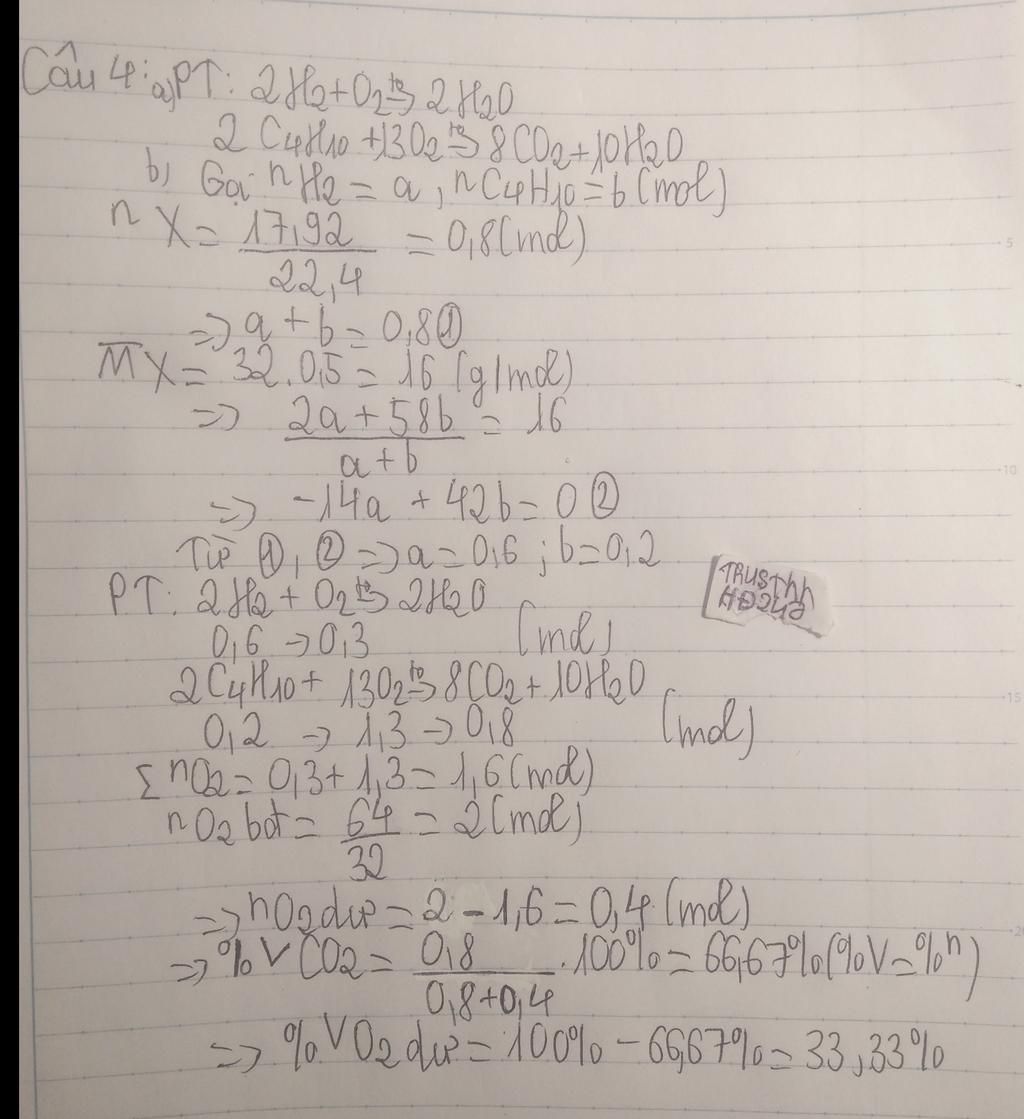 Câu 4: a) PT: 2H2+O2 tº→ 2H2O
2C4H10 +13O2 tº→ 8CO2+10H2O
b) Gọi nH2 = a, nC4H10=b(mol)
nX= 17,92/22,4 = 0,8(mol)
=> a+b=0,8①
M̅X= 32.0,5 = 16 (g/mol)
=> (2a+58b)/(a+b) = 16
=> -14a + 42b=0②
Từ ①, ② => a=0,6; b=0,2
PT: 2H2+ O2 tº→ 2H2O
0,6 → 0,3 (mol)
2C4H10+ 13O2 tº→ 8CO2+10H2O
0,2 → 1,3 → 0,8 (mol)
Σ nO2=0,3+1,3=1,6(mol)
nO2 bđ= 64/32 = 2(mol)
=> nO2 dư=2-1,6=0,4(mol)
=> %VCO2= 0,8/(0,8+0,4) .100%=66,67%(%V=%n)
=> %VO2 dư=100%-66,67%=33,33%